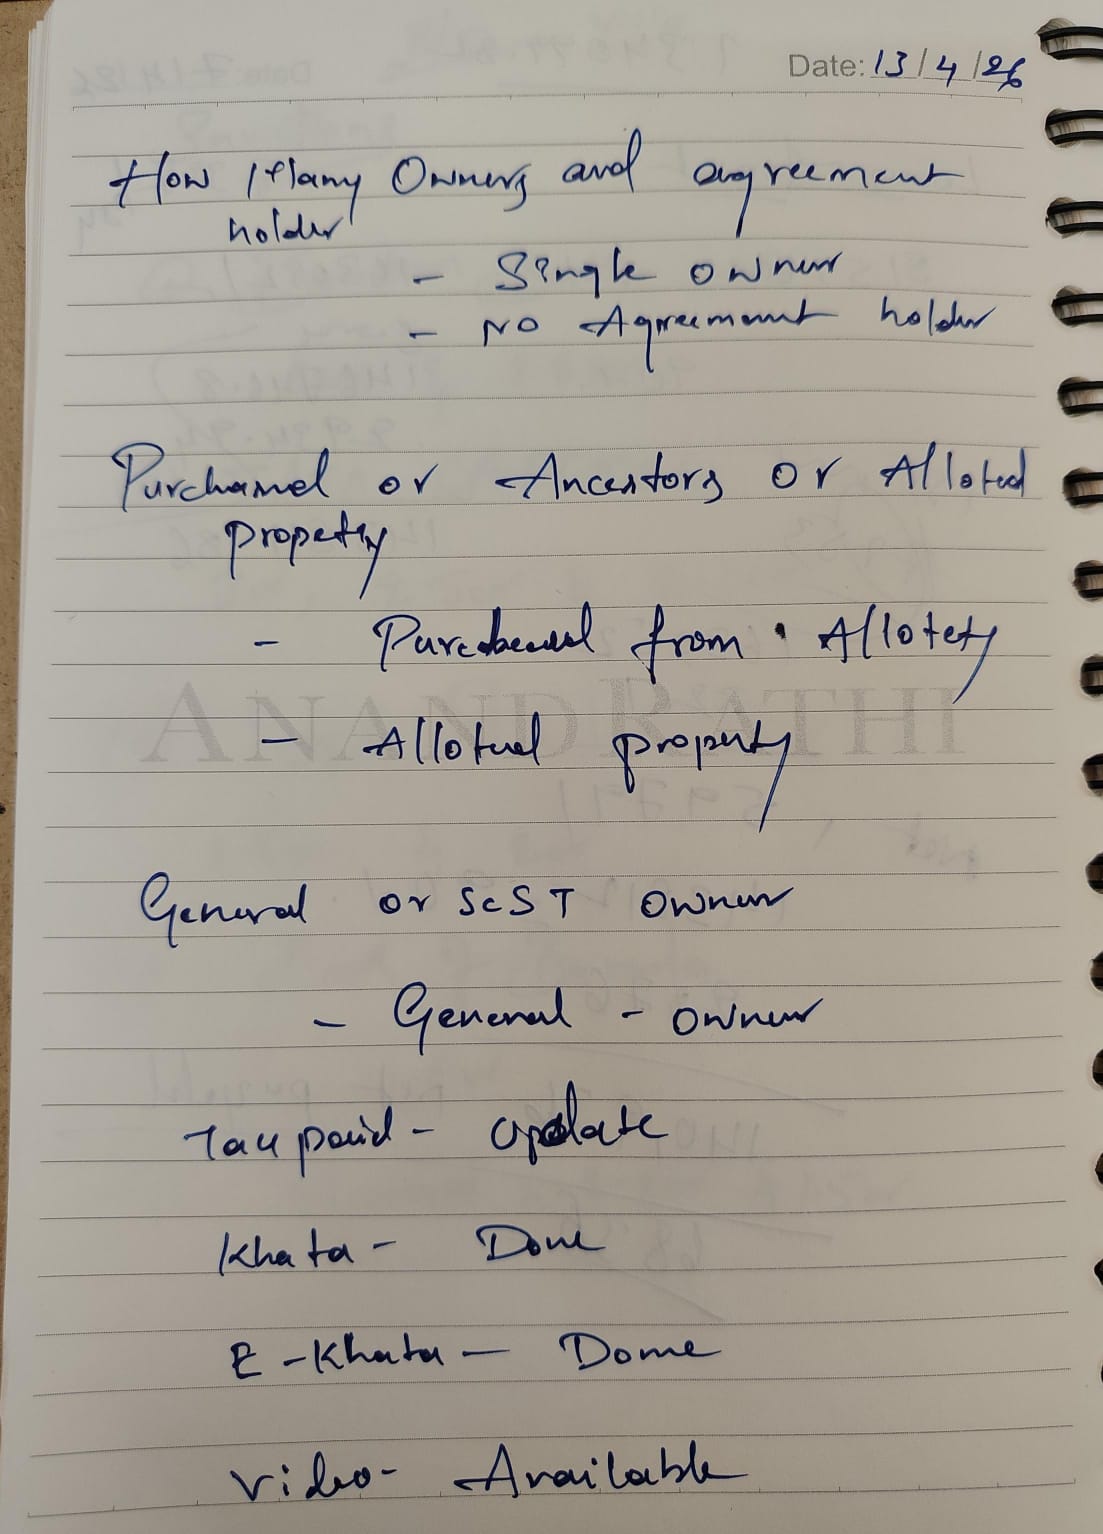 Date: 13/4/26
How Many Owners and agreement
holder
- Single owner
- No Agreement holder
Purchased or Ancestors or Alloted
property
- Purchased from Allotety
ANAND RATHI
- Alloted property
General or ScST owner
- General - owner
Tax paid - Update
Khata - Done
E-Khata - Done
Video - Available